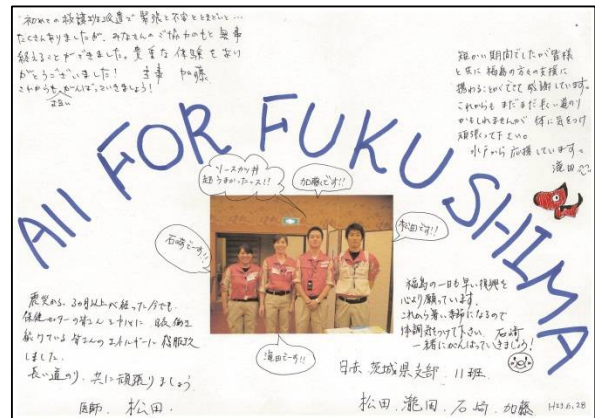 初めての救護班派遣で緊張と不安ととまどいと…
たくさんありましたが、みなさんのご協力のもと無事
終えることができました。貴重な体験をあり
がとうございました! 主事 加藤
これからもがんばっていきましょう!
短かい期間でしたが皆様
と共に福島の方の支援に
携わることができて感謝しています。
これからもまだまだ長い道のり
かもしれませんが 体に気をつけ
頑張って下さい。
水戸から応援しています
滝田
All FOR FUKUSHIMA
ソースカツ丼
超うまかったっス!!
加藤です!!
松田です!!
石崎でーす!!
滝田でーす!!
震災から、3ヵ月以上が経った今でも、
保健センターの皆さん
続けている皆さんのエネルギーに
しました。
長い道のり、共に頑張りましょう。
医師 松田
福島の一日も早い復興を
心より願っています。
これから暑い季節になるので
体調気をつけて下さい 石崎
一緒にがんばっていきましょう!
日赤 茨城県支部 11班
松田、瀧田、石崎、加藤
H23.6.28